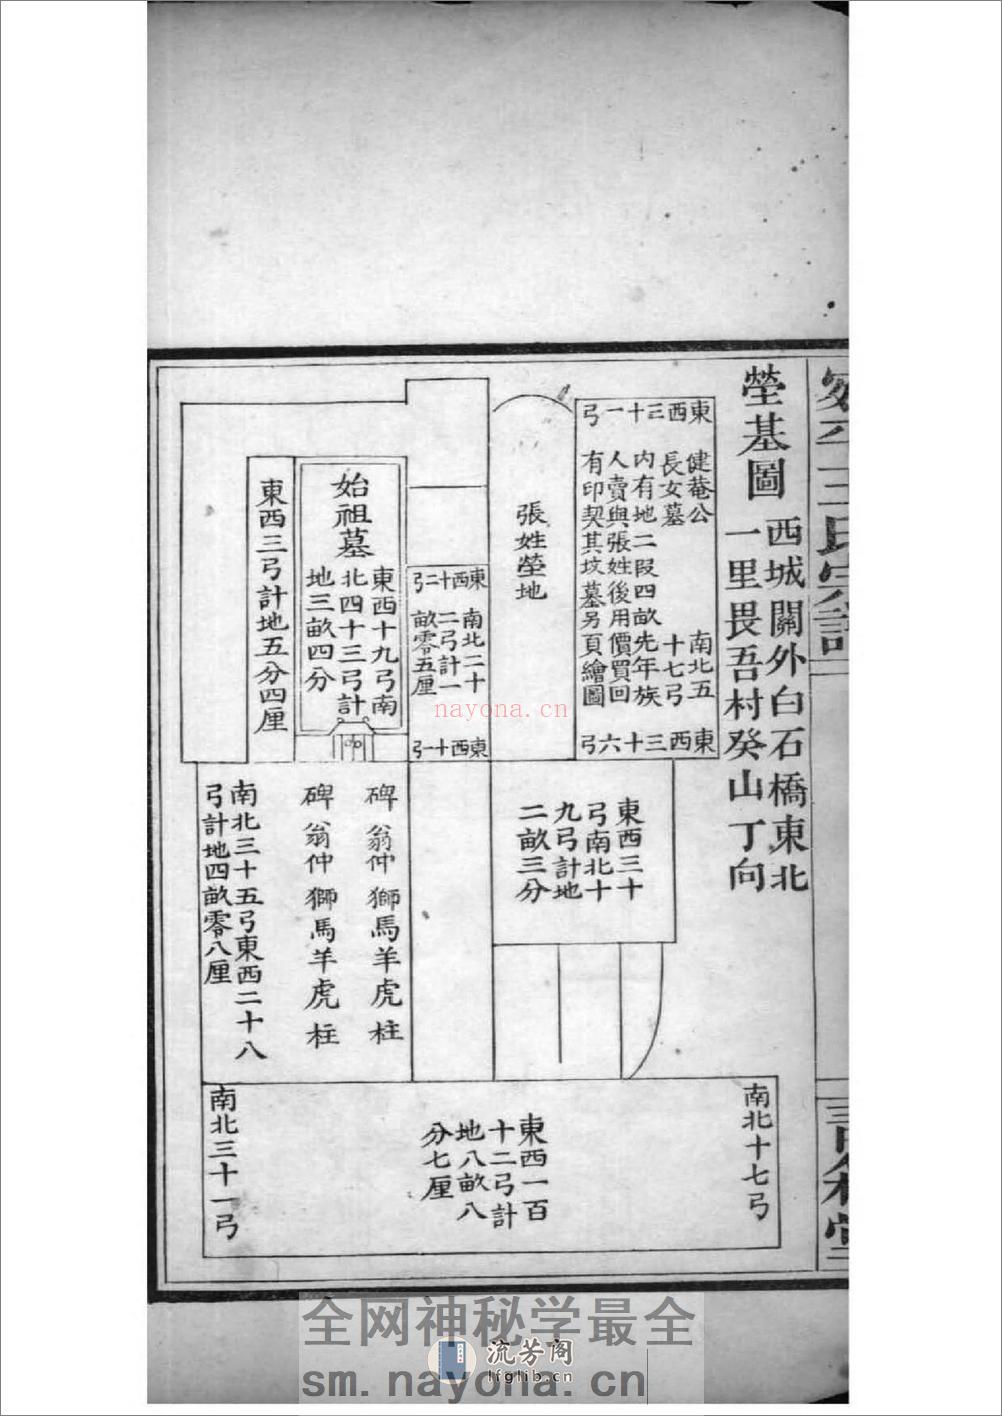 塋基圖
西城關外白石橋東北
一里畏吾村癸山丁向
東西三十一弓
健菴公
長女墓
南北五
十七弓
內有地二段四畝先年族
人賣與張姓後用價買回
有印契其坟墓另頁繪圖
東西三十六弓
張姓塋地
東西十二弓
南北二十
二弓計一
畝零五厘
東西十一弓
始祖墓
東西十九弓南
北四十三弓計
地三畝四分
東西三弓計地五分四厘
東西三十
弓南北十
九弓計地
二畝三分
碑翁仲獅馬羊虎柱
碑翁仲獅馬羊虎柱
南北三十五弓東西二十八
弓計地四畝零八厘
南北十七弓
東西一百
十二弓計
地八畝八
分七厘
南北三十一弓
nayona.cn
全网神秘学最全
流芳阁
lfglib.cn
sm.nayona.cn